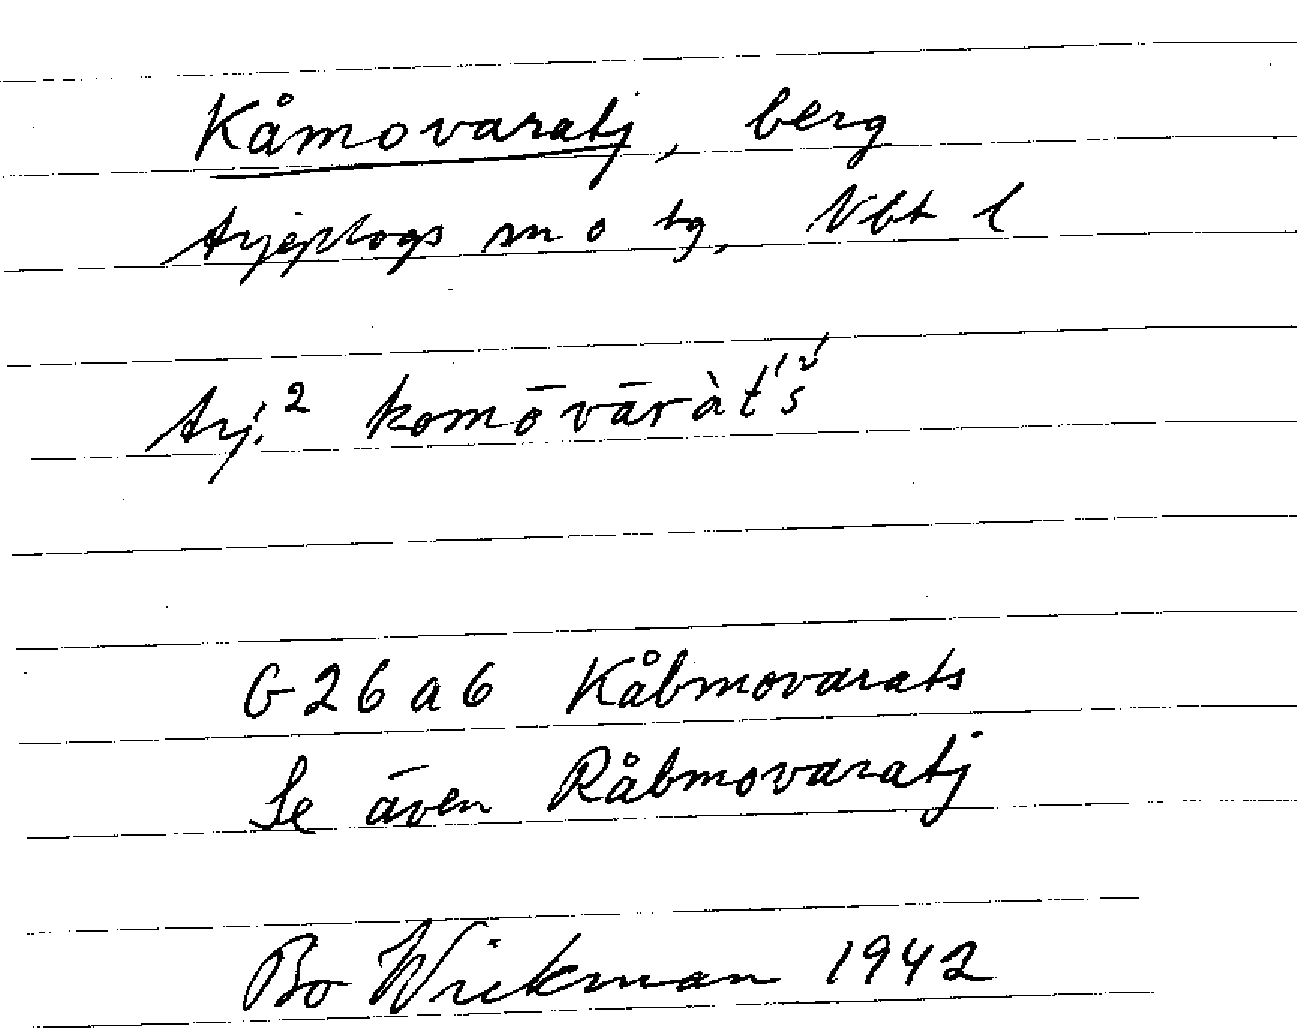 Kåmovaratj, berg
Arjeplogs sn o tg, Vbt l
Arj.² komōvāràt's̀'
G26a6 Kåbmovarats
Se även Råbmovaratj
Bo Wickman 1942